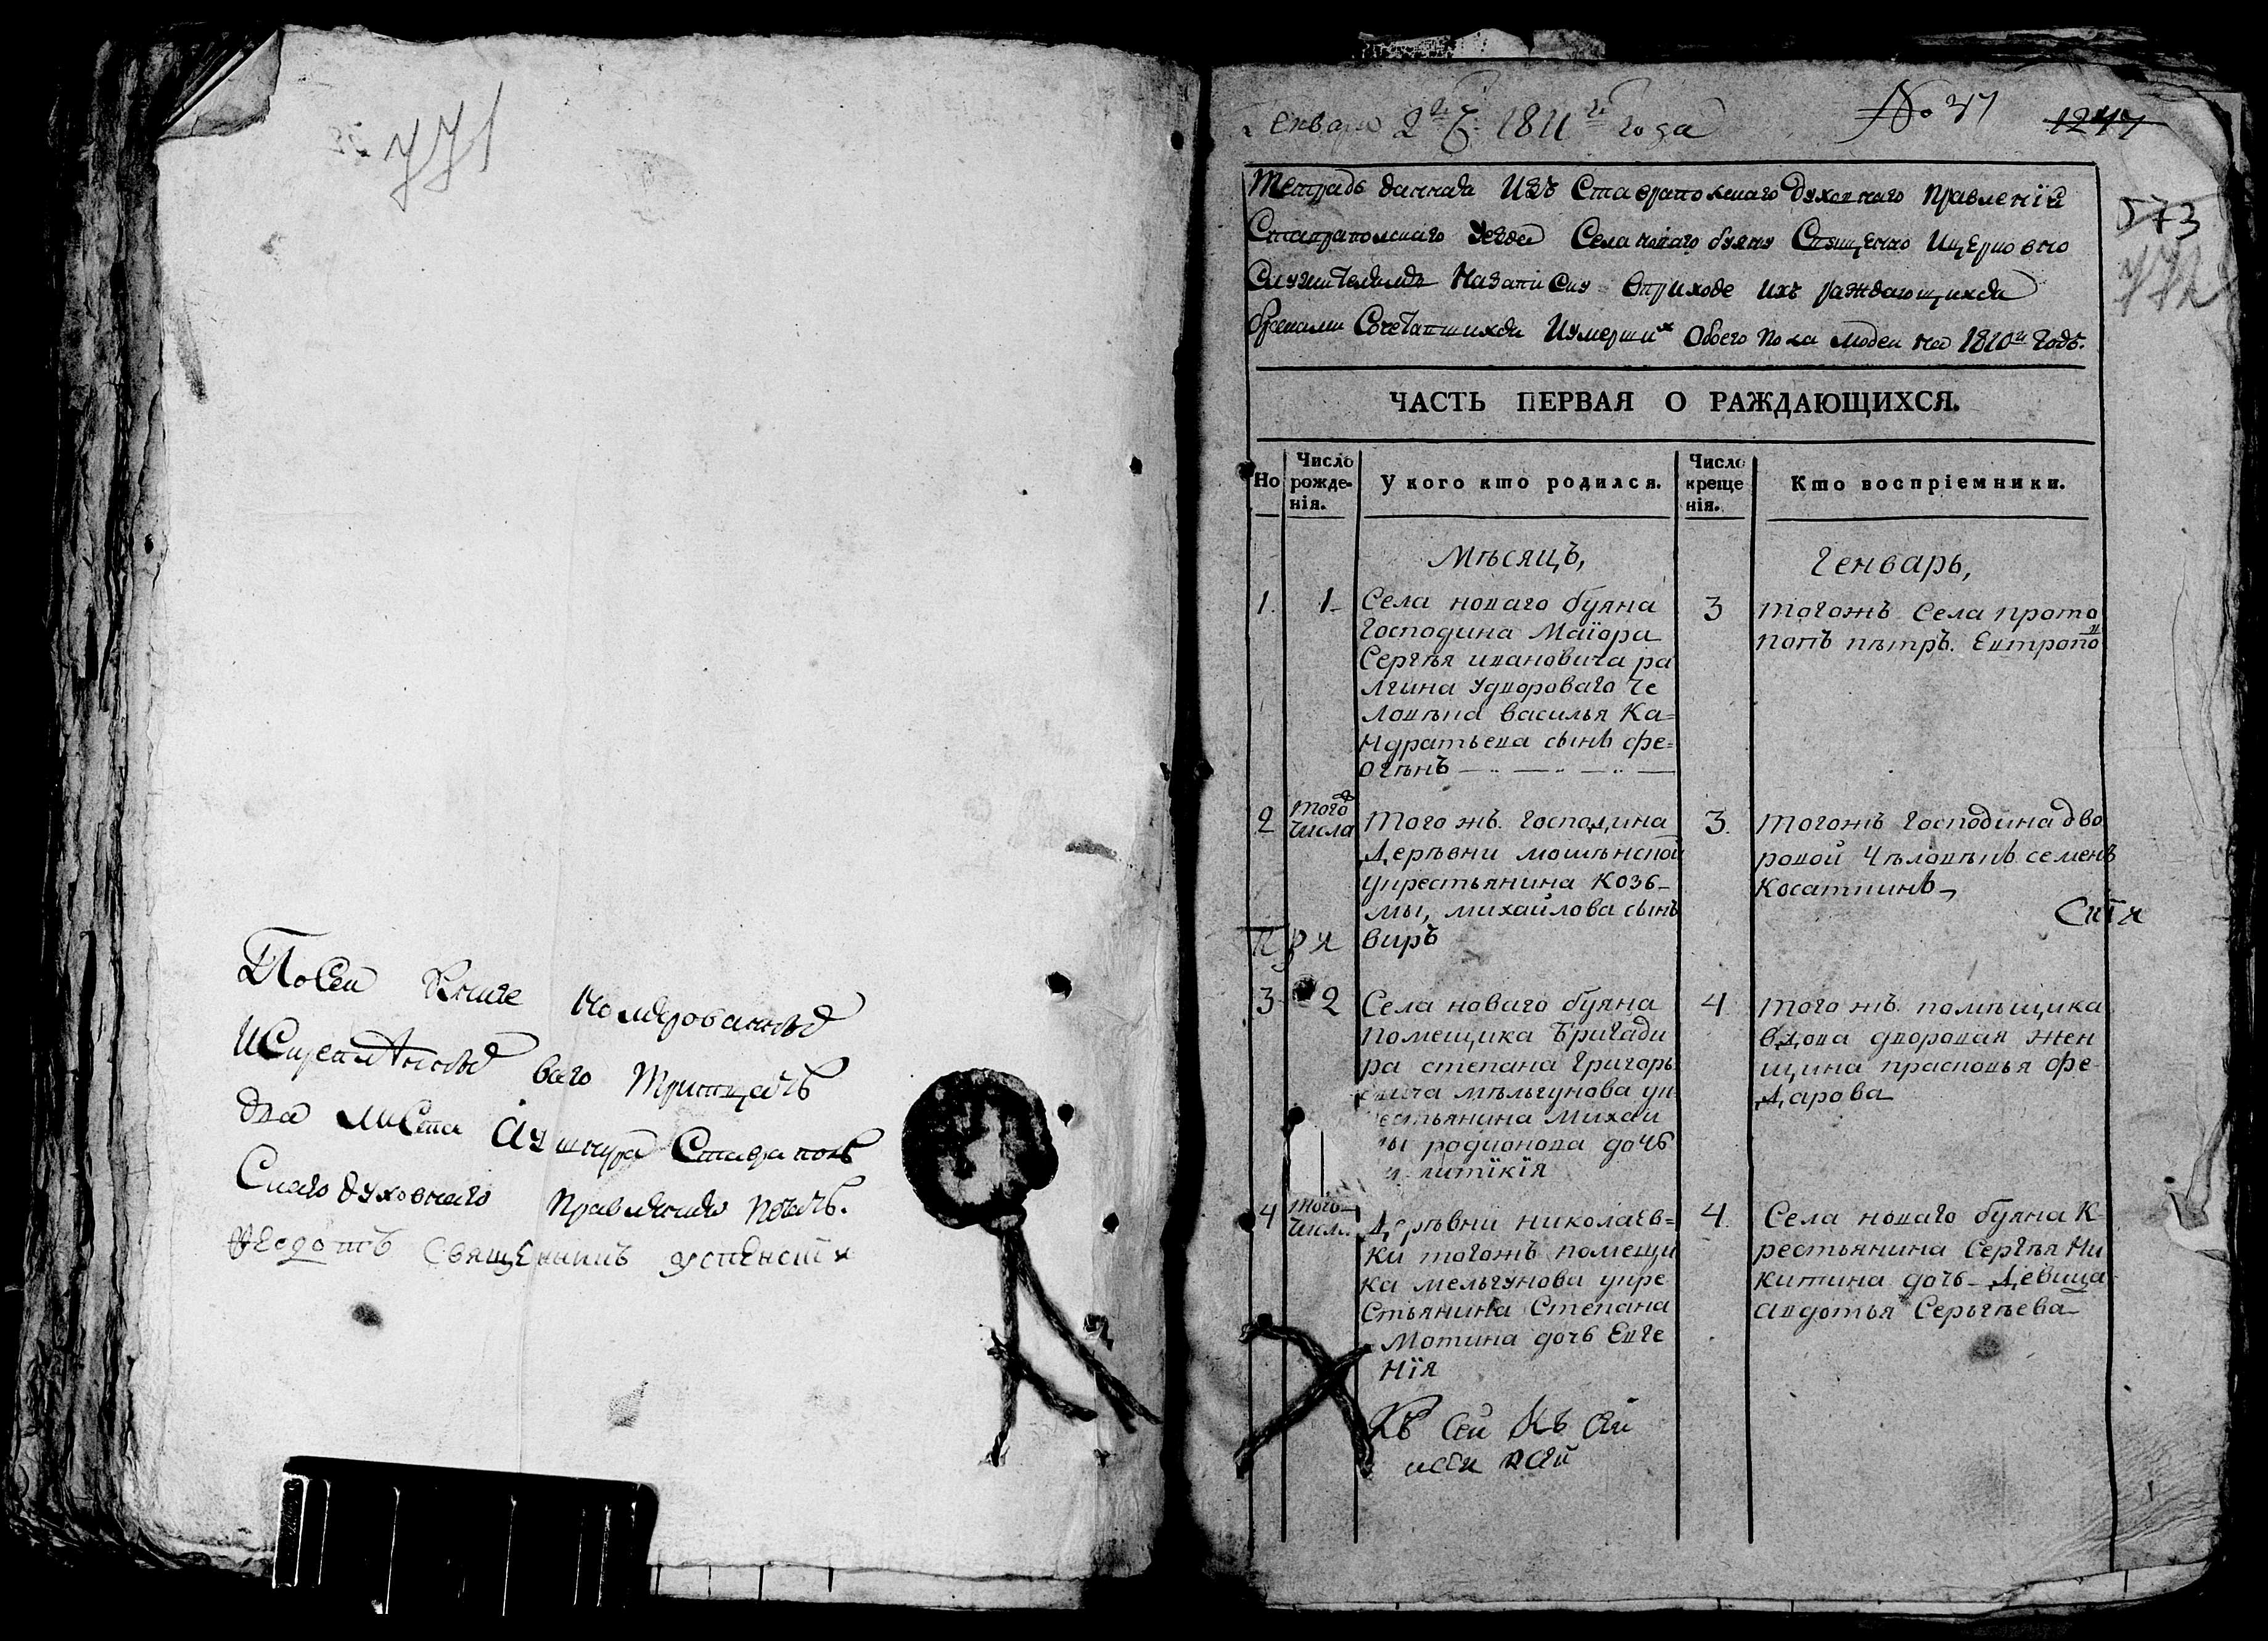 771
По сей книге номерованныхъ
и скрепленныхъ всего тритцать
два листа а у шнура Ставраполь
скаго духовнаго правления печать.
Ѳедотъ священникъ успенскій
Генваря 2го Ч: 1811го года
No 37
1277
Тетрадь данная изъ Ставрапольскаго духовнаго правленiя
Ставрапольскаго уезда Села новаго буяну Священно и церковно
служителямъ на записку в приходе ихъ раждающихся
браками сочетавшихся и умершихъ обоего пола людей на 1810й годъ.
573
772
ЧАСТЬ ПЕРВАЯ О РАЖДАЮЩИХСЯ.
Но
Число рожде-нія.
У кого кто родился.
Число креще нія.
Кто воспріемники.
Мѣсяцъ,
Генварь,
1. 1. Села новаго буяна
Господина Маіора
Сергѣя ивановича ра
лгина у двороваго че
ловѣка василья Ка=
ндратьева сынъ фе=
огѣнъ
3 тогожъ Села прото
попъ пѣтръ. Евтропо
2 того числа Того жъ. господина
Деревни мошѣнской
у крестьянина Козь-
мы, михайлова сынъ
виръ
3. тогожъ господина дво
ровой чѣловѣкъ семенъ
Косаткинъ
3 2 Села новаго буяна
помещика Бригади
ра степана Григорь
евича мѣльгунова у к
естьянина Михаи
лы родионова дочь
литікія
4 того жъ помѣщика
вдова дворовая жен
щина прасковья фе-
дарова
4 того числ. Деревни николаев=
ки тогожъ помещи
ка мельгунова у кре
стьянина Степана
Мотина дочь Евге
нія
4. Села новаго буяна к
рестьянина Сергѣя Ни
китина дочь девица
авдотья Серьгѣева
Къ сей Къ сей